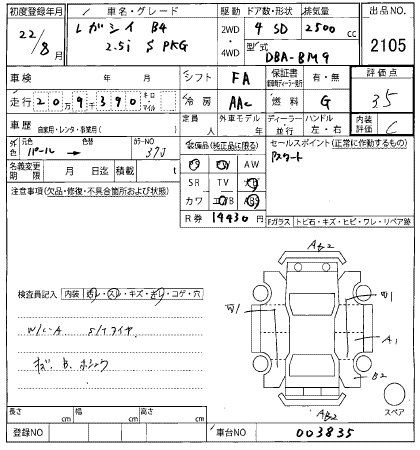 初度登録年月 車名・グレード 駆動 ドア数・形状 排気量 出品No.
22/8月 レガシイ B4 2WD 4 SD 2500cc
2.5i S PKG 4WD 型式 DBA-BM9 2105
車検 年 月 シフト FA 保証書 有・無 評価点
走行 20万9千390 キロ・マイル 冷房 AAC 燃料 G 3.5
車歴 自家用・レンタ・事業用( ) 定員 人 外車モデル 年 ディーラー・並行 ハンドル 左・右 内装評価 C
外色 元色 パール→ 色替 カラーNO 37J 装備品(純正品に限る) セールスポイント(正常に作動するもの)
PS PW AW Pスタート
名義変更期限 月 日迄 積載 t SR TV ナビ
注意事項(欠品・修復・不具合箇所および状態) カワ エアB ABS
R券 19430円 Fガラス トビ石・キズ・ヒビ・ワレ・リペア跡
AB2
検査員記入 内装 ヨゴレ・スレ・キズ・キレ・コゲ・穴
W1 W1
W/C-A S/Tタイヤ A1
B2
AB2 スペア
長さ cm 幅 cm 高さ cm
登録NO 車台NO 003835